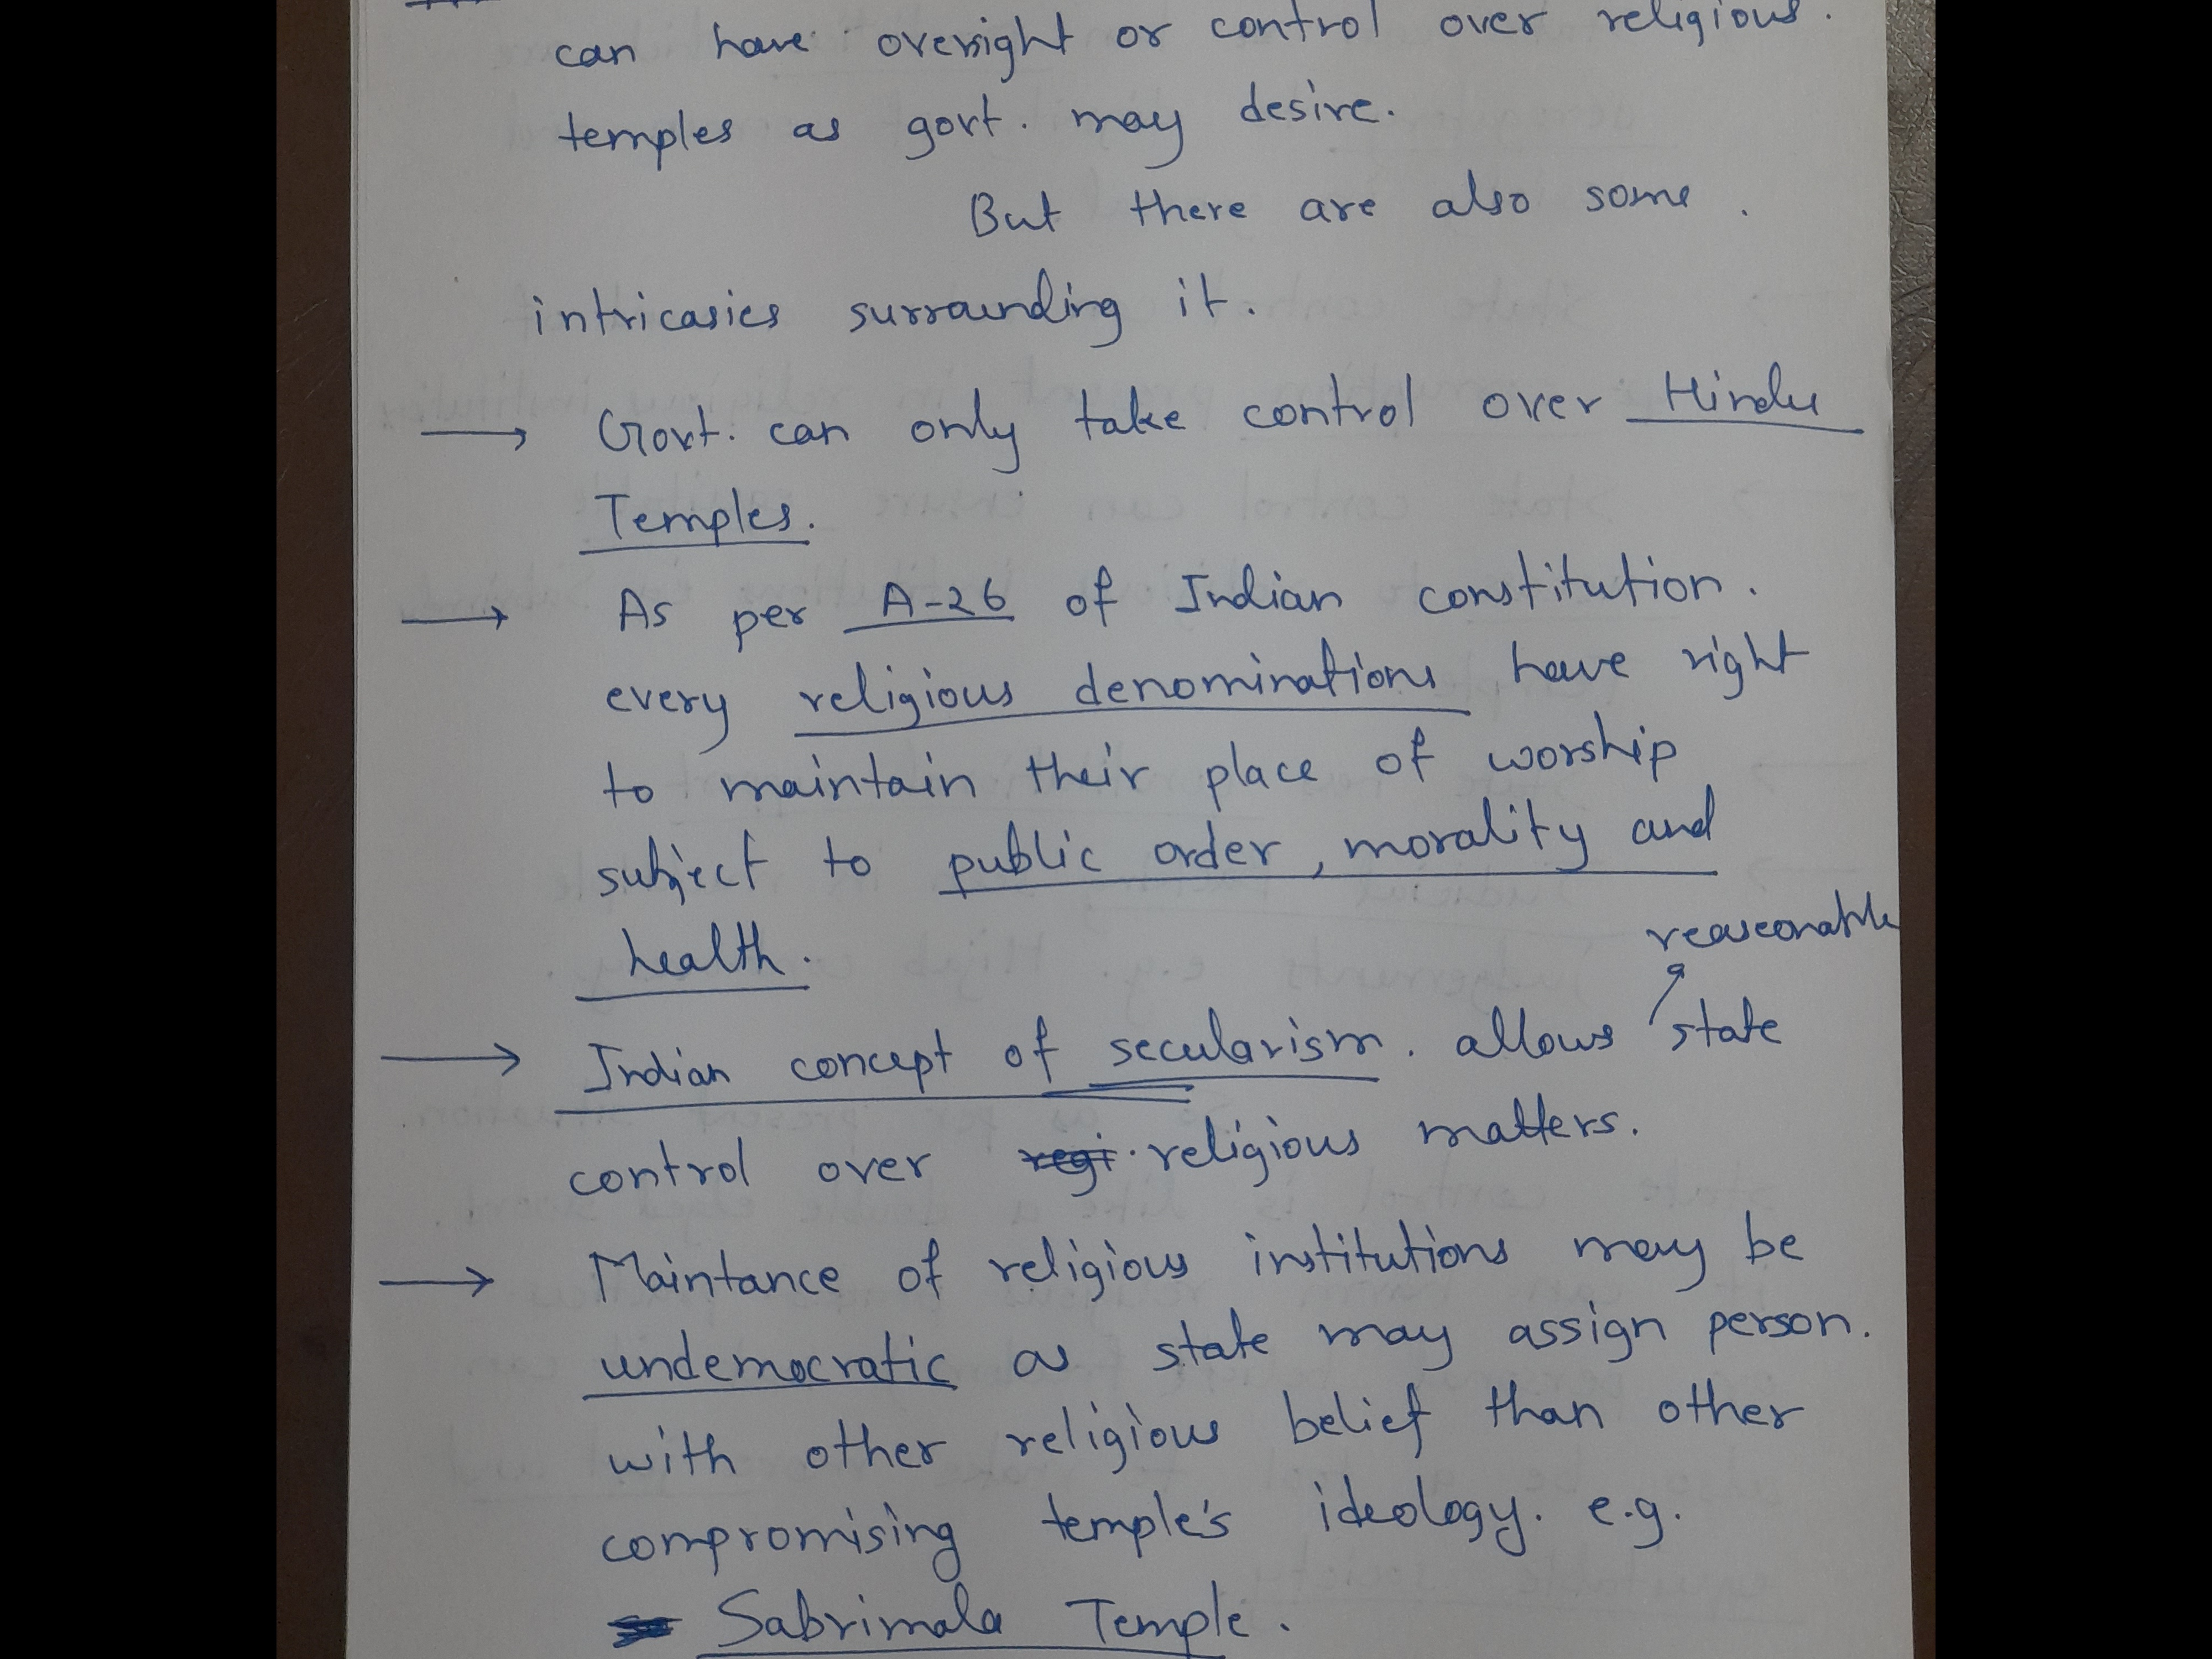 can have oversight or control over religious.
temples as govt. may desire.
But there are also some.
intricasies surrounding it.
→ Govt. can only take control over Hindu
Temples.
→ As per A-26 of Indian constitution.
every religious denominations have right
to maintain their place of worship
subject to public order, morality and
health.
reaseonable
→ Indian concept of secularism. allows state
control over regi. religious matters.
→ Maintance of religious institutions may be
undemocratic as state may assign person.
with other religious belief than other
compromising temple's ideology. e.g.
Sabrimala Temple.